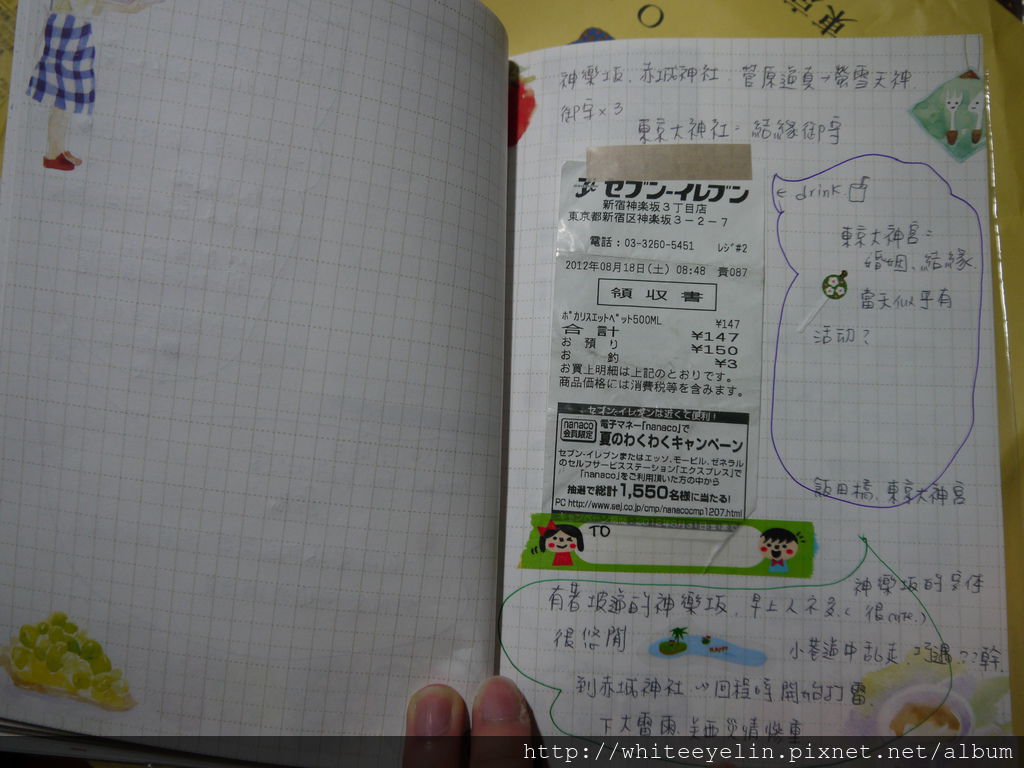 東京
神樂坂、赤城神社 菅原道真→螢雪天神
御守×3
東京大神社：結緣御守
セブン-イレブン
新宿神楽坂3丁目店
東京都新宿区神楽坂3-2-7
電話：03-3260-5451 レジ#2
2012年08月18日(土) 08:48 責087
領収書
ポカリスエットペット500ML ¥147
合計 ¥147
お預り ¥150
お釣 ¥3
お買上明細は上記のとおりです。
商品価格には消費税等を含みます。
セブン-イレブンは近くて便利！
nanaco会員限定 電子マネー「nanaco」で
夏のわくわくキャンペーン
セブン-イレブンまたはエッソ、モービル、ゼネラル
のセルフサービスステーション「エクスプレス」で
「nanaco」をご利用頂いた方の中から
抽選で総計1,550名様に当たる!
PC http://www.sej.co.jp/cmp/nanacocmp1207.html
drink
東京大神宮：
婚姻、結緣
當天似乎有
活动？
飯田橋、東京大神宮
TO
神樂坂的
有著坡道的神樂坂，早上人不多（很cute）
很悠閒
HAPPY
小巷道中乱走
到赤城神社 回程時開始打雷
下大雷雨
http://whiteeyelin.pixnet.net/album